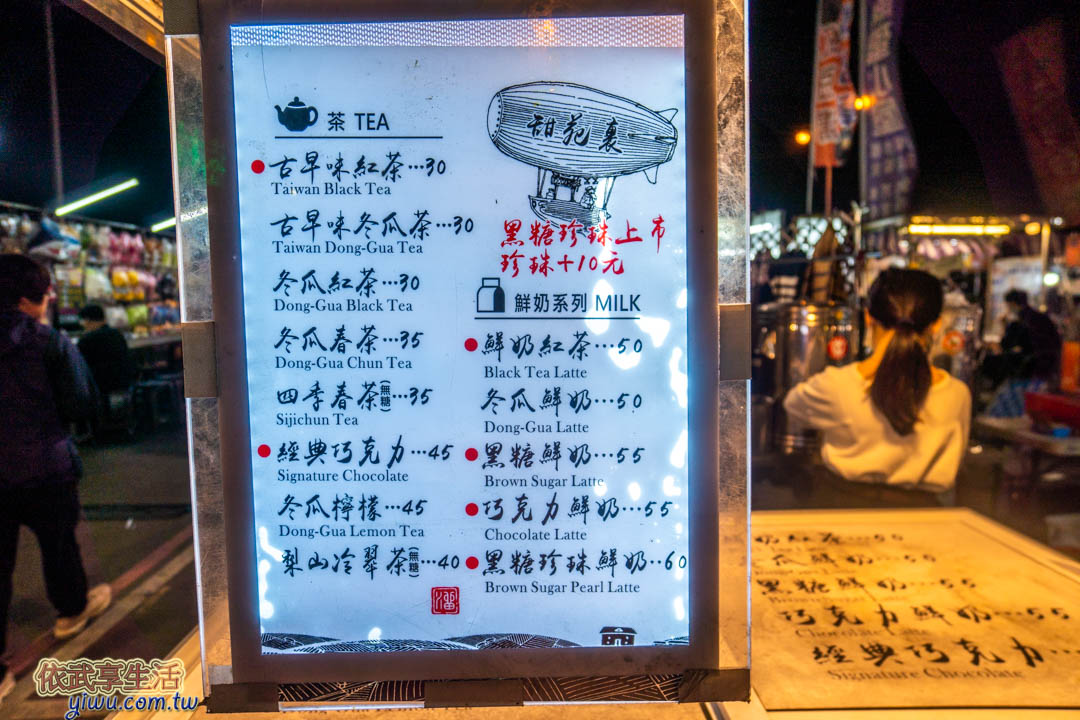 茶 TEA
古早味紅茶…30
Taiwan Black Tea
古早味冬瓜茶…30
Taiwan Dong-Gua Tea
冬瓜紅茶…30
Dong-Gua Black Tea
冬瓜春茶…35
Dong-Gua Chun Tea
四季春茶(無糖)…35
Sijichun Tea
經典巧克力…45
Signature Chocolate
冬瓜檸檬…45
Dong-Gua Lemon Tea
梨山冷翠茶(無糖)…40
甜苑裏
黑糖珍珠上市
珍珠+10元
鮮奶系列 MILK
鮮奶紅茶…50
Black Tea Latte
冬瓜鮮奶…50
Dong-Gua Latte
黑糖鮮奶…55
Brown Sugar Latte
巧克力鮮奶…55
Chocolate Latte
黑糖珍珠鮮奶…60
Brown Sugar Pearl Latte
奶紅茶…50
瓜鮮奶…50
黑糖鮮奶…55
巧克力鮮奶…55
Chocolate Latte
經典巧克力…
Signature Chocolate
依武享生活
yiwu.com.tw